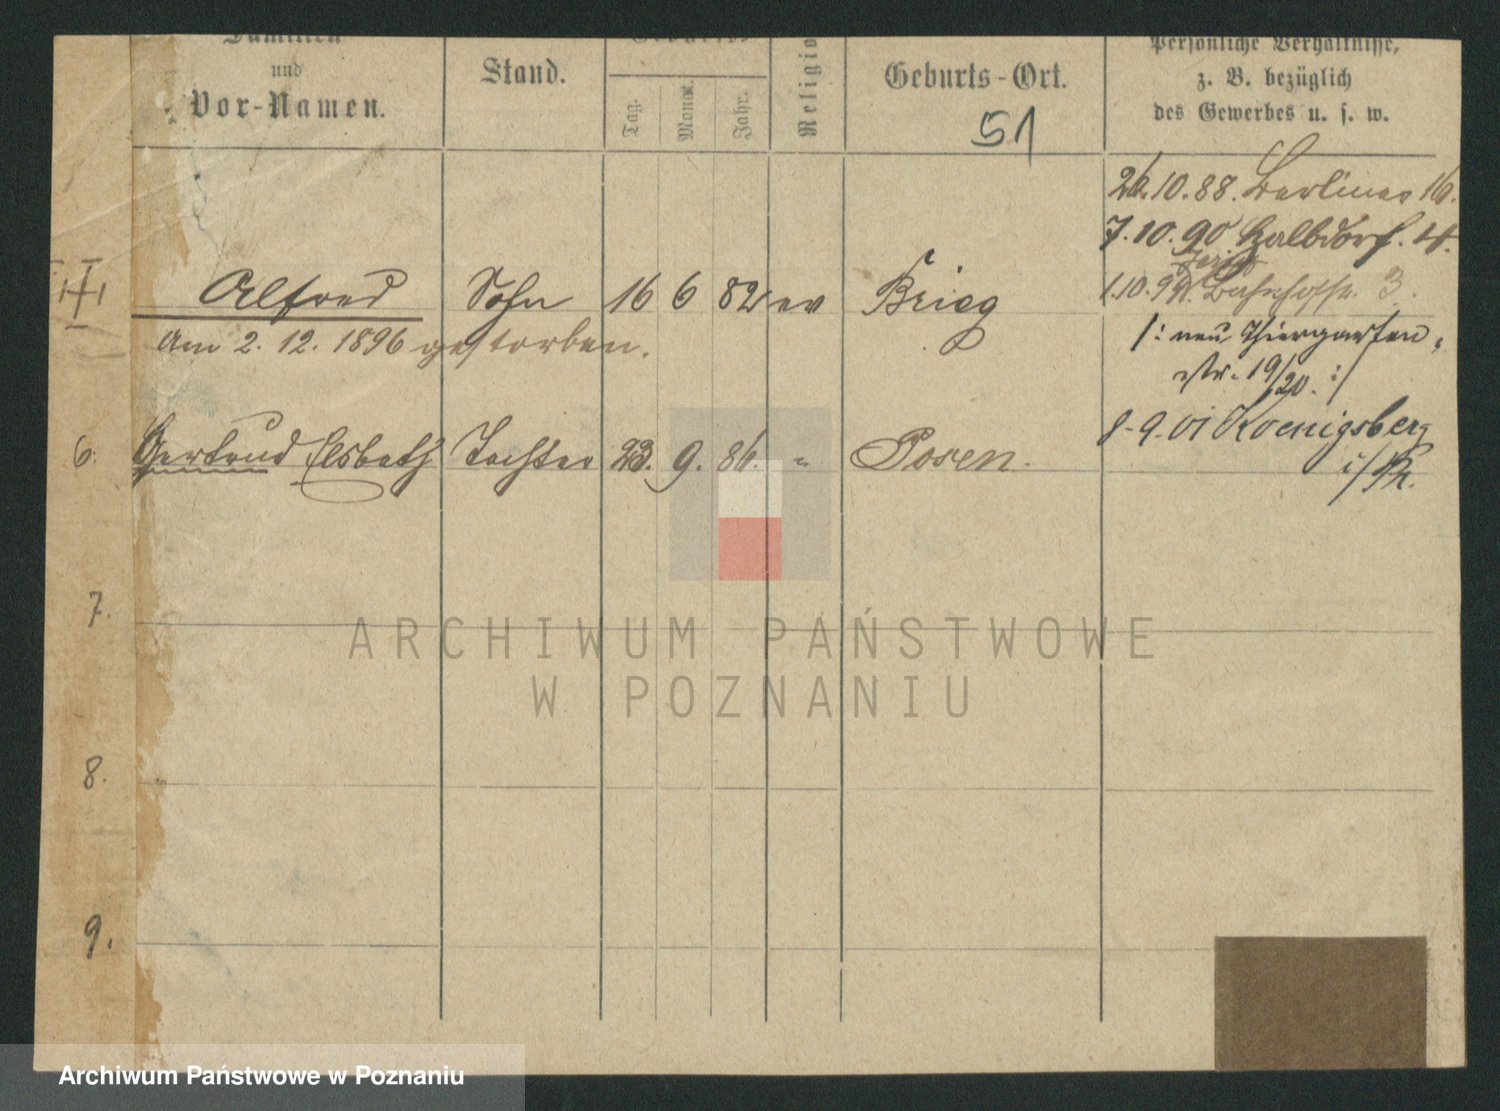 Familien
und
Vor-Namen.
Stand.
Geburts-
Tag.
Monat.
Jahr.
Religio
Geburts-Ort.
51
Persönliche Verhältnisse,
z. B. bezüglich
des Gewerbes u. s. w.
26.10.88. Berliner 16.
7.10.90 Halbdorf. 4.
Alfred Sohn 16 6 82 ev Brieg
1.10.92. Bahnhofstr. 3.
Am 2. 12. 1896 gestorben.
/: neu Thiergarten-
str. 19/20. :/
6. Gertrud Elsbeth Tochter 23. 9. 86. " Posen.
8.9.01 Koenigsberg
i/Pr.
7.
8.
9.
ARCHIWUM PAŃSTWOWE
W POZNANIU
Archiwum Państwowe w Poznaniu